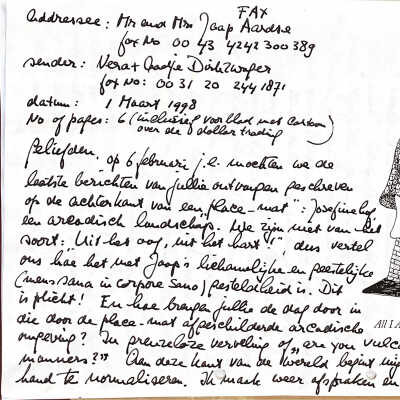 FAX
Addressee: Mr and Mrs Jaap Aardse
fax No 00 43 4242 300 389
sender: Vera + Aadje Dinkzwager
fax No: 00 31 20 244 1871
datum: 1 Maart 1998
No of pages: 6 (inclusief voorblad met cartoon
over de dollar trading)
Geliefden, op 6 februari j.l. mochten we de
laatste berichten van jullie ontvangen geschreven
op de achterkant van een "place-mat": Josefinehof,
een arcadisch landschap. We zijn niet van het
soort: "Uit het oog, uit het hart!", dus vertel
ons hoe het met Jaap's lichamelijke en geestelijke
(mens sana in corpore sano) gesteldheid is. Dit
is plicht! En hoe brengen jullie de dag door in
die door de place-mat afgeschilderde arcadische
omgeving? In grenzeloze verveling of "are you
manners?" Aan deze kant van de wereld begint
hand te normaliseren. Ik maak weer afspraken en
All I A